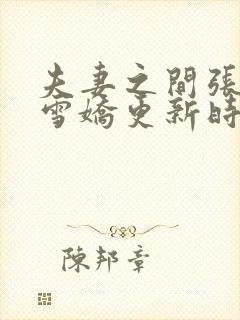 夫妻之間張
雪嬌更新時
陳邦章